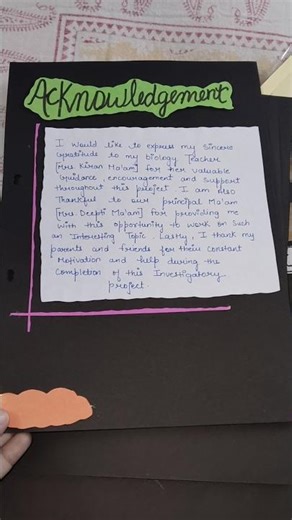 Acknowledgement
I would like to express my Sincere
Gratitude to my biology Teacher
[Mrs. Kiran Ma'am] for her valuable
Guidance, encouragement and Support
throughout this project. I am also
Thankful to our principal Ma'am
[Mrs. Deepti Ma'am] for providing me
With this opportunity to work on Such
an Interesting Topic. Lastly, I thank my
parents and friends for their Constant
Motivation and help during the
Completion of this Investigatory
project.